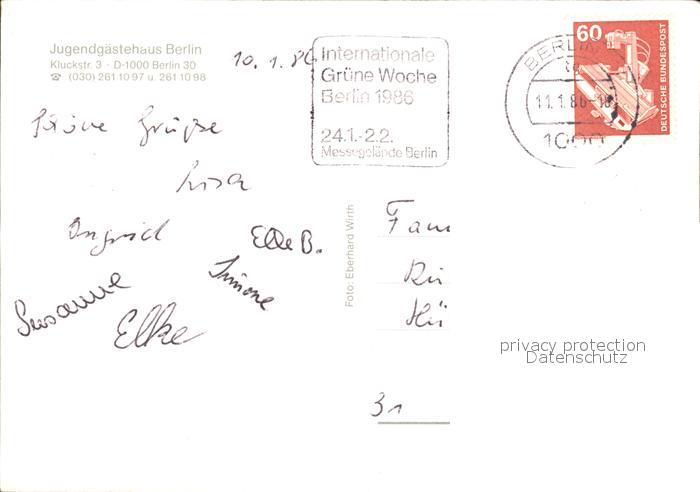 Jugendgästehaus Berlin
Kluckstr. 3 · D-1000 Berlin 30
☎ (030) 261 10 97 u. 261 10 98
10. 1. 86
Internationale
Grüne Woche
Berlin 1986
24.1.-2.2.
Messegelände Berlin
BERLIN
11.1.86-18
1000
60
DEUTSCHE BUNDESPOST
Schöne Grüße
Ingrid
Elke B.
Simone
Susanne
Elke
Foto: Eberhard Wirth
Fam
Rü
Hü
31
privacy protection
Datenschutz